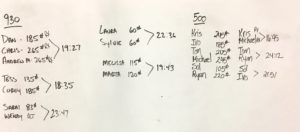 930
Dan - 185#
Chris - 265#
Andrew M. 265#
> 19:27
Tess 135#
Corey 185#
> 18:35
Sarah 83#
Wendy 65
> 23:47
Laura 60#
Sylvie 60#
> 22:36
Melissa 115#
Maeta 120#
> 19:43
500
Kris 205#
Ilo 185#
Tom 205#
Michael 245#
Sol 105#
Ryan 220#
Kris
Michael
> 16:45
Tom
Ryan
> 24:12
Sol
Ilo